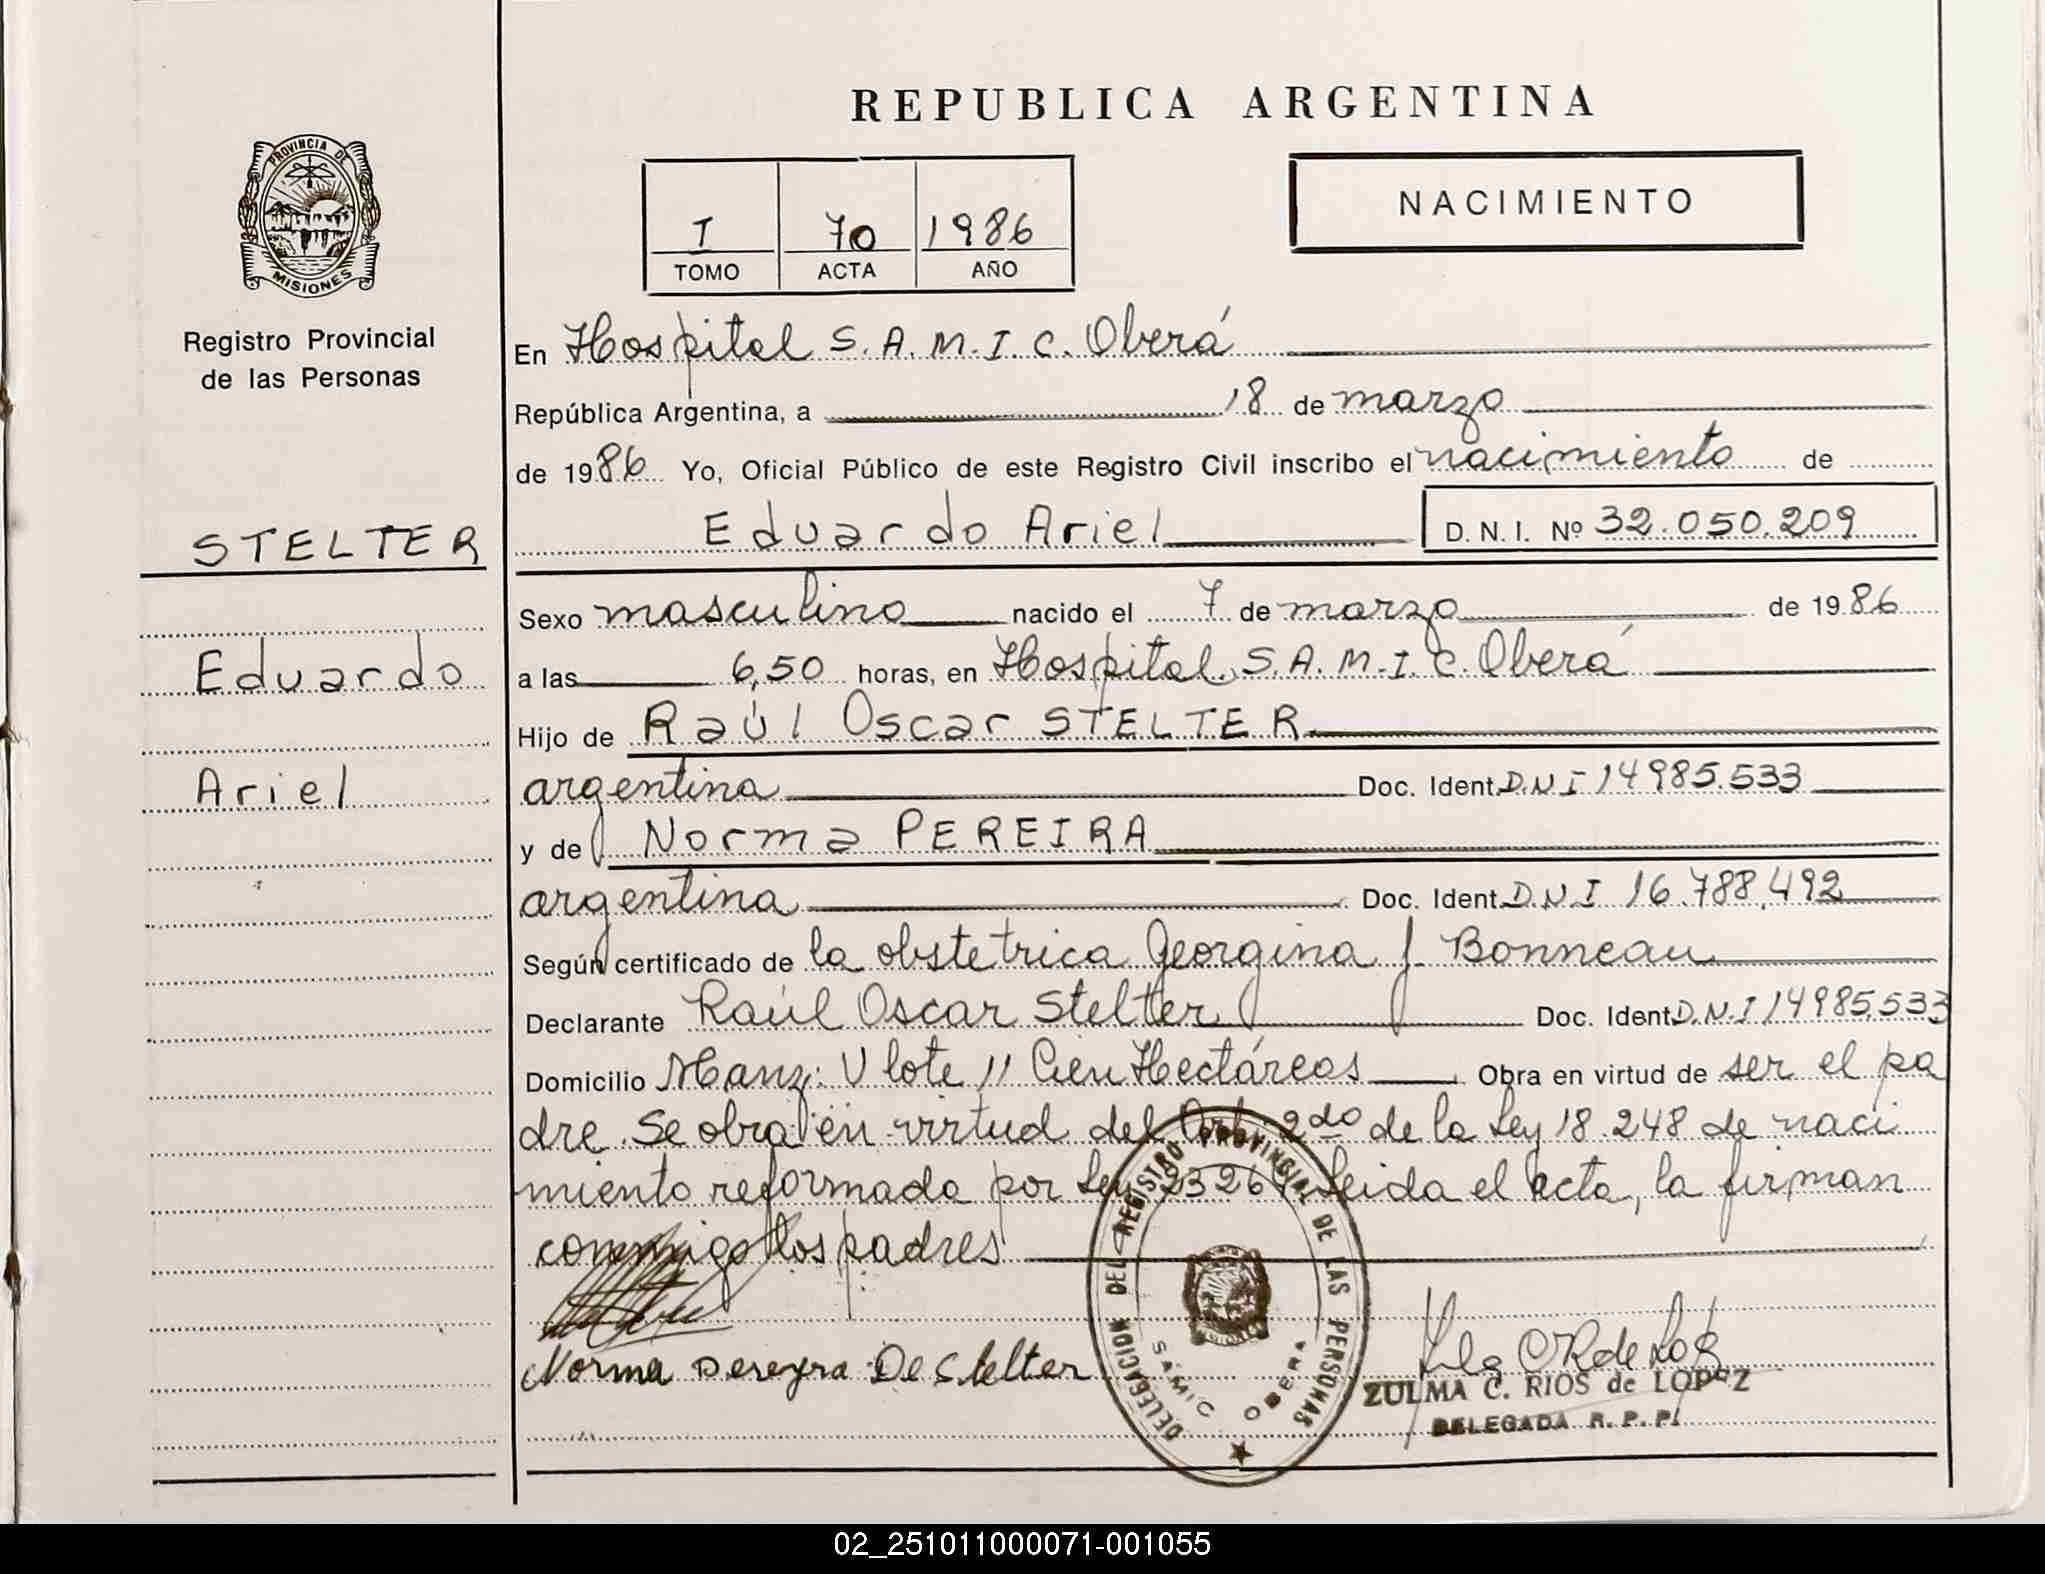 REPUBLICA ARGENTINA
PROVINCIA DE MISIONES
Registro Provincial
de las Personas
STELTER
Eduardo
Ariel
I 70 1986
TOMO ACTA AÑO
NACIMIENTO
En Hospital S.A.M.I.C. Oberá
República Argentina, a 18 de marzo
de 1986 Yo, Oficial Público de este Registro Civil inscribo el nacimiento de
Eduardo Ariel D.N.I. Nº 32.050.209
Sexo masculino nacido el 7 de marzo de 1986
a las 6,50 horas, en Hospital S.A.M.I.C. Oberá
Hijo de Raúl Oscar STELTER
argentina Doc. Ident. D.N.I 14985.533
y de Norma PEREIRA
argentina Doc. Ident. D.N.I 16.788.492
Según certificado de la obstetrica Georgina J. Bonneau
Declarante Raúl Oscar Stelter Doc. Ident. D.N.I 14985.533
Domicilio Manz: V lote 11 Cien Hectáreas Obra en virtud de ser el pa
dre. Se obra en virtud del Art. 2do de la Ley 18.248 de naci
miento reformada por Ley Leida el acta, la firman
conmigo los padres
Norma Pereyra De Stelter
DELEGACION DEL REGISTRO PROVINCIAL DE LAS PERSONAS
SAMIC OBERA
ZULMA C. RIOS de LOPEZ
DELEGADA R. P. P.
02_251011000071-001055